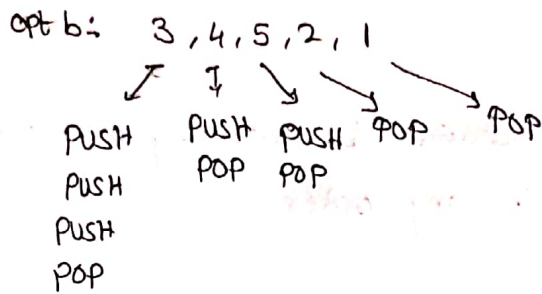 opt b:- 3, 4, 5, 2, 1
PUSH PUSH PUSH POP POP
PUSH POP POP
PUSH
POP